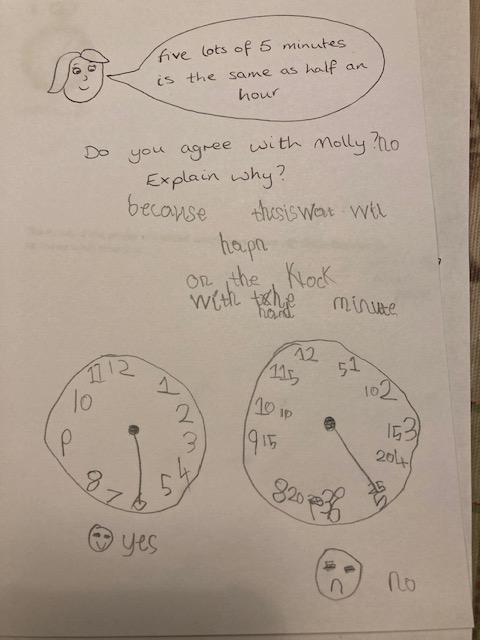 five lots of 5 minutes
is the same as half an
hour
Do you agree with Molly? no
Explain why?
because this is wot wil
hapn
on the klock
with the minute
hand
12
11
1
10
2
9
3
8
4
7
5
12
11 5
5 1
10 2
10 10
15 3
9 15
20 4
8 20
25
5
30
6
yes
no